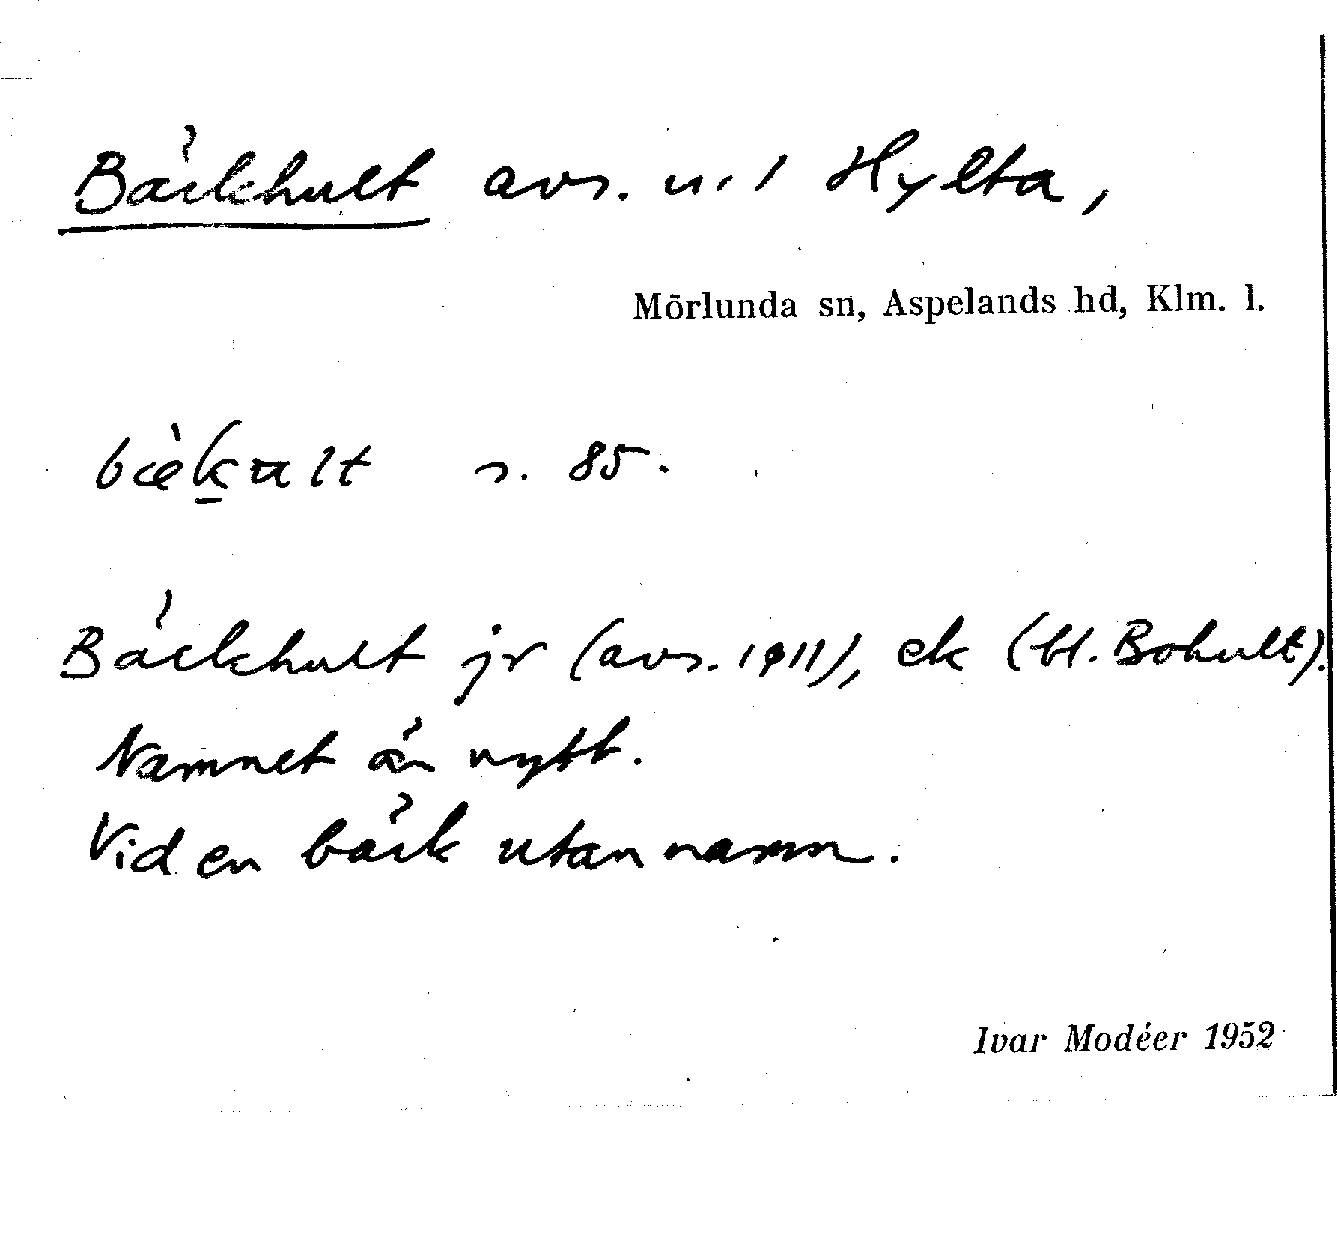 Bäckhult avs. u. 1 Hylta,
Mörlunda sn, Aspelands hd, Klm. l.
s. 85.
Bäckhult jr (avs. 1911), ek (bl. Bohult).
Namnet än nytt.
Vid en bäck utan namn.
Ivar Modéer 1952